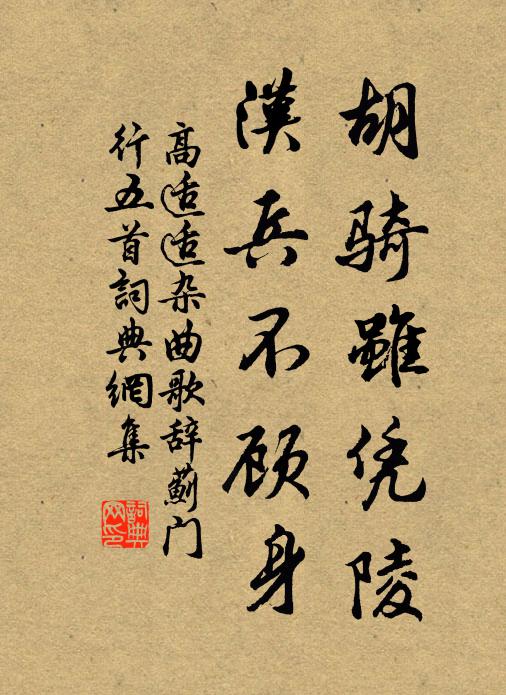 胡骑雖凭陵
漢兵不顾身
高适适杂曲歌辞蓟门
行五首詞典網集
詞典
网印